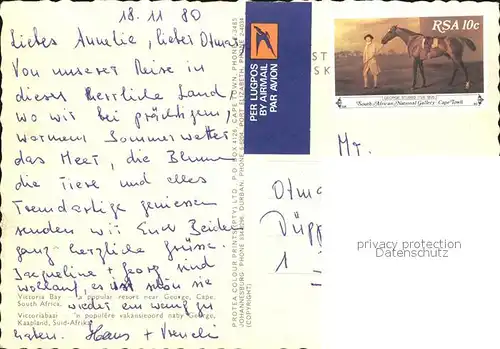 18.11 80
Liebes Annelie, lieber Otmar
Von unserer Reise in
dieses herrliche Land
wo wir bei prächtigem,
warmem Sommerwetter
das Meer, die Blumen
die Tiere und alles
Fremdartige geniessen
senden wir Euch Beiden
ganz herzliche Grüsse.
Jacqueline + Georg sind
wohlauf, es ist schön sie
wieder ein wenig zu
haben. Hans + Vreneli
Victoria Bay a popular resort near George, Cape,
South Africa.
Victoriabaai 'n populêre vakansieoord naby George,
Kaapland, Suid-Afrika
PROTEA COLOUR PRINTS (PTY) LTD. P.O. BOX 4126, CAPE TOWN, PHONE
JOHANNESBURG PHONE DURBAN, PHONE PORT ELIZABETH, PHONE
(COPYRIGHT)
PER LUGPOS
BY AIRMAIL
PAR AVION
RSA 10c
South African National Gallery, Cape Town
Mr.
Otma
Düpp
1
privacy protection
Datenschutz